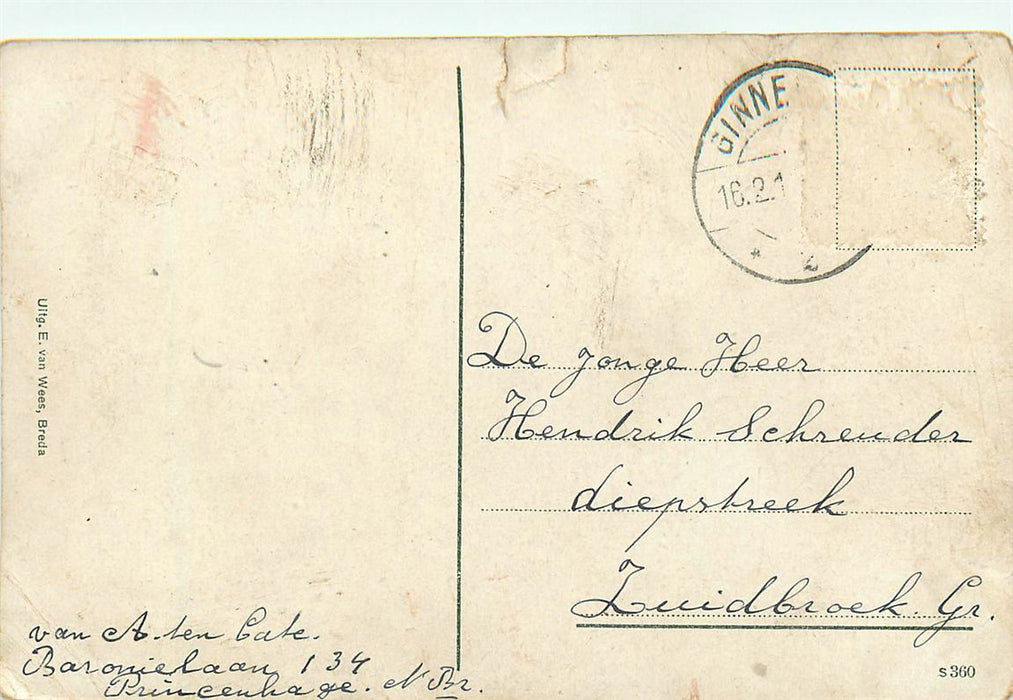 Uitg. E. van Wees, Breda
van A. ten Cate.
Baronielaan 134
Princenhage. N Br.
GINNE
16.2.1
2
De jonge Heer
Hendrik Schreuder
diepstreek
Zuidbroek. Gr.
s 360